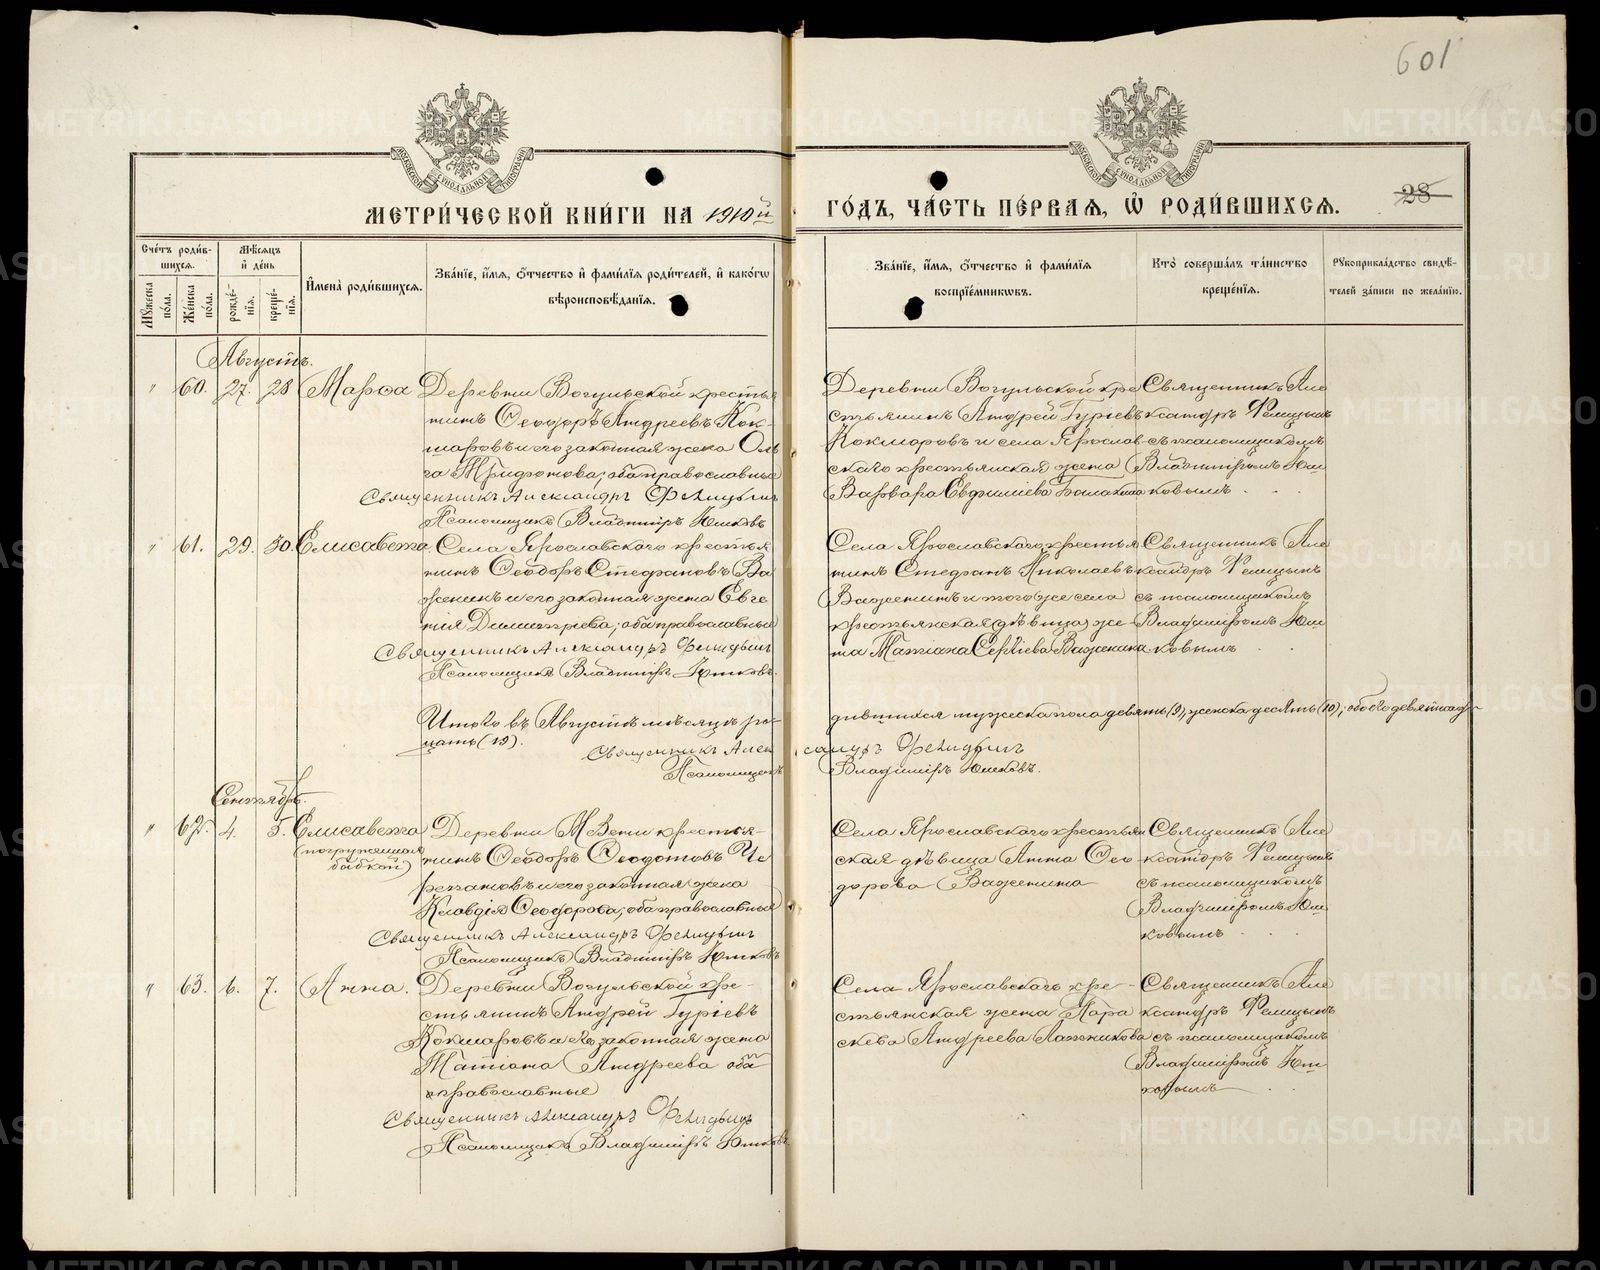 601
МЕТРИ́ЧЕСКОЙ КНИ́ГИ НА 1910й ГО́ДЪ, ЧА́СТЬ ПЕ́РВАЯ, Ѽ РОДИ́ВШИХСЯ.
28
Сче́тъ роди́в-
шихся.
Мѣ́сяцъ
и҆ де́нь
Мꙋ́жеска по́ла.
Же́нска по́ла.
рожде́-
нїя.
креще́-
нїя.
И҆мена̀ роди́вшихся.
Зва́нїе, и҆́мя, ѻ҆́тчество и҆ фами́лїя роди́телей, и҆ како́гѡ
вѣроисповѣ́данїя.
Зва́нїе, и҆́мя, ѻ҆́тчество и҆ фами́лїя
воспрїе́мникѡвъ.
Кто̀ соверша́лъ та́инство
креще́нїя.
Рꙋкоприкла́дство свидѣ́-
телей за́писи по жела́нїю.
Августъ.
" 60. 27. 28 Марѳа
Деревни Вогульской крестья
нинъ Ѳеодоръ Андреевъ Кок-
шаровъ и его законная жена Оль
га Трифонова, оба православные
Священникъ Александръ Фелицынъ
Псаломщикъ Владиміръ Юшковъ
Деревни Вогульской кре
стьянинъ Андрей Гуріевъ
Кокшаровъ и села Ярослав-
скаго крестьянская жена
Варвара Евфиміева
Священникъ Але
ксандръ Фелицынъ
съ псаломщикомъ
Владиміромъ Юш
ковымъ . .
" 61. 29. 30. Елисавета
Села Ярославскаго крестья
нинъ Ѳеодоръ Стефановъ Ва
женинъ и его законная жена Евге
нія Димитріева, оба православные
Священникъ Александръ Фелицынъ
Псаломщикъ Владиміръ Юшковъ.
Села Ярославскаго крестья
нинъ Стефанъ Николаевъ
Важенинъ и того же села
крестьянская дѣвица же-
на Татіана Сергіева Важенина
Священникъ Але
ксандръ Фелицынъ
съ псаломщикомъ
Владиміромъ Юш
ковымъ . .
Итого въ Августѣ мѣсяцѣ ро-
дившихся мужеска пола девять (9), женска десять (10), обоего девятнад-
цать (19).
Священникъ Александръ Фелицынъ
Псаломщикъ Владиміръ Юшковъ.
Сентябрь.
" 62. 4. 5. Елисавета
(погруженная
бабкой)
Деревни Мѣвени крестья-
нинъ Ѳеодоръ Ѳеодотовъ Че
репановъ и его законная жена
Клавдія Ѳеодорова, оба православные
Священникъ Александръ Фелицынъ
Псаломщикъ Владиміръ Юшковъ
Села Ярославскаго крестьян
ская дѣвица Анна Ѳео
дорова Важенина
Священникъ Але
ксандръ Фелицынъ
съ псаломщикомъ
Владиміромъ Юш
ковымъ . .
" 63. 6. 7. Анна.
Деревни Вогульской кре-
стьянинъ Андрей Гуріевъ
Кокшаровъ и его законная жена
Татіана Андреева оба
православные
Священникъ Александръ Фелицынъ
Псаломщикъ Владиміръ Юшковъ
Села Ярославскаго кре-
стьянская жена Пара
скева Андреева
Священникъ Але
ксандръ Фелицынъ
съ псаломщикомъ
Владиміромъ Юш
ковымъ . .
METRIKI.GASO-URAL.RU